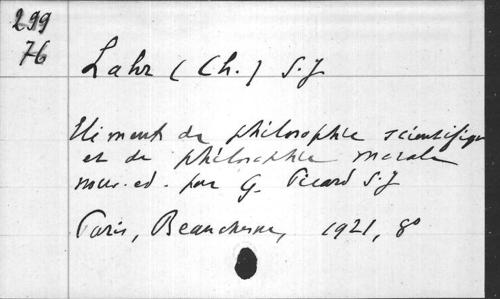 299
76
Lahr (Ch.) S.J
Eléments de philosophie scientifique
et de philosophie morale
nouv. ed. par G. Picard S.J
Paris, Beauchesne, 1921, 8°